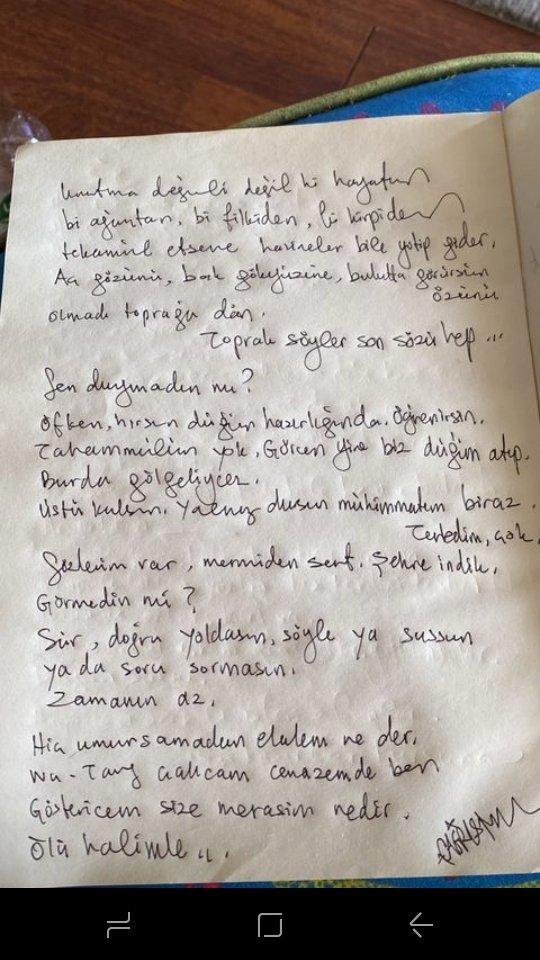 Unutma değerli değil ki hayatın
bi ağaçtan, bi filkiden, bi kirpiden
tekamül etsene hazineler bile yitip gider.
Aç gözünü, bak gökyüzüne, bulutta görürsün
özünü
olmadı toprağa dön.
Toprak söyler son sözü hep ...
Sen duymadın mı?
Öfken, hırsın düğün hazırlığında. Öğrenirsin.
Tahammülüm yok, Görcen yine biz düğüm atıp.
Burda gölgeliycez.
Üstü kalsın. Yalnız dursun mühimmatım biraz.
Terledim, çok.
Sözlerim var, mermiden sert. Şehre indik.
Görmedin mi?
Sür, doğru yoldasın, söyle ya sussun
ya da soru sormasın.
Zamanın az.
Hiç umursamadım elalem ne der.
Wu-Tang çalıcam cenazemde ben
Göstericem size merasim nedir.
Ölü halimle ...